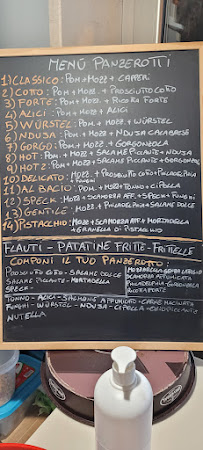 MENÙ PANZEROTTI
1) CLASSICO: POM. + MOZZ + CAPPERI
2) COTTO: POM. + MOZZ. + PROSCIUTTO COTTO
3) FORTE: POM + MOZZ. + RICOTTA FORTE
4) ALICI: POM + MOZZ. + ALICI
5) WÜRSTEL: POM + MOZZ. + WÜRSTEL
6) NDUJA: POM + MOZZ + NDUJA CALABRESE
7) GORGO: POM + MOZZ + GORGONZOLA
8) HOT: POM + MOZZ + SALAME PICCANTE + NDUJA
9) HOT 2: POM + MOZZ + SALAME PICCANTE + GORGONZOLA
10) DELICATO: MOZZ. + PROSCIUTTO COTTO + PHILADELPHIA + FUNGHI
11) AL BACIO: POM. + MOZZ + TONNO + CIPOLLA
12) SPECK: MOZZ + SCAMORZA AFF. + SPECK + FUNGHI
13) GENTILE: MOZZ + PHILADELPHIA + SALAME DOLCE
14) PISTACCHIO: MOZZ + SCAMORZA AFF + MORTADELLA + GRANELLA DI PISTACCHIO
FLAUTI - PATATINE FRITTE - FRITTELLE
COMPONI IL TUO PANZEROTTO:
PROSCIUTTO COTTO - SALAME DOLCE
SALAME PICCANTE - MORTADELLA
SPECK -
MOZZARELLA SENZA LATTOSIO
SCAMORZA AFFUMICATA
PHILADELPHIA - GORGONZOLA
RICOTTA FORTE
TONNO - ALICI - SALMONE AFFUMICATO - CARNE MACINATA
FUNGHI - WÜRSTEL - NDUJA - CIPOLLA -
NUTELLA